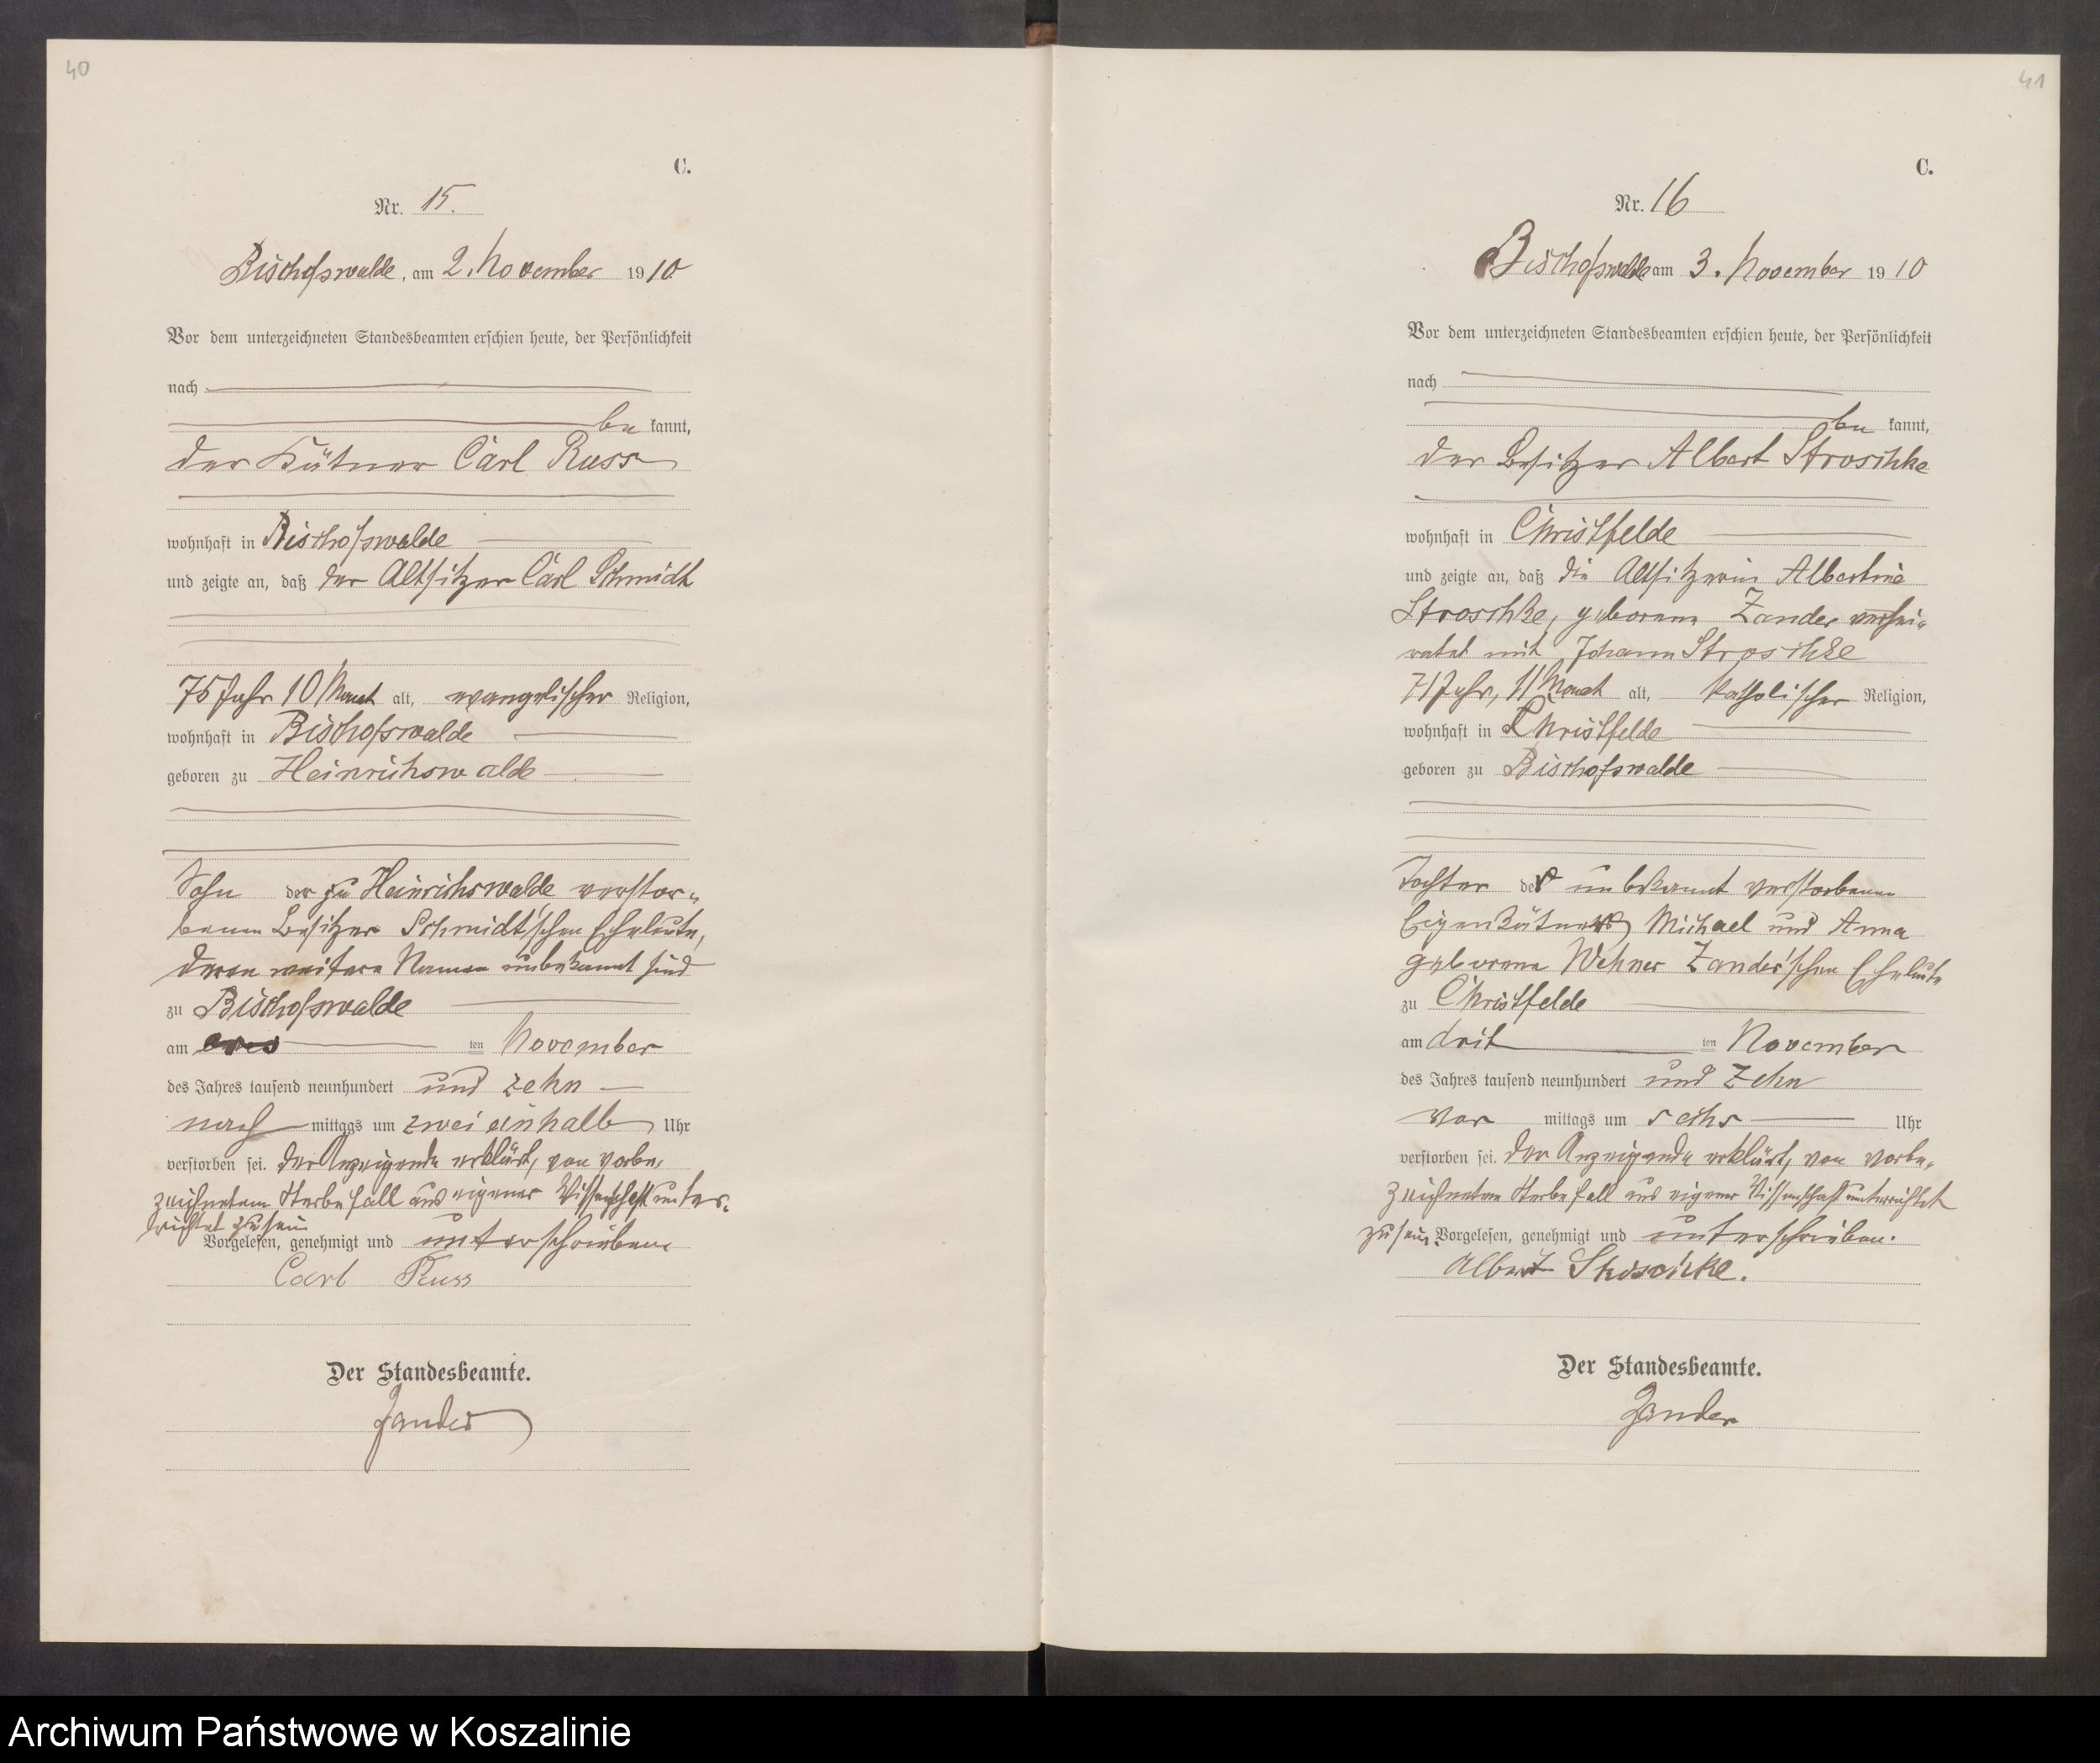 40
C.
Nr. 15.
Bischofswalde, am 2. November 1910
Vor dem unterzeichneten Standesbeamten erschien heute, der Persönlichkeit
nach
be kannt,
der Kätner Carl Russ
wohnhaft in Bischofswalde
und zeigte an, daß der Altsitzer Carl Schmidt
75 Jahr 10 Monat alt, evangelischer Religion,
wohnhaft in Bischofswalde
geboren zu Heinrichswalde
Sohn der zu Heinrichswalde verstor-
benen Besitzer Schmidt'schen Eheleute,
deren weitere Namen unbekannt sind
zu Bischofswalde
am ten November
des Jahres tausend neunhundert und zehn
nach mittags um zwei einhalb Uhr
verstorben sei. Der Anzeigende erklärt, von vorbe-
zeichnetem Sterbefall aus eigener Wissenschaft unter-
richtet zu sein
Vorgelesen, genehmigt und unterschrieben
Carl Russ
Der Standesbeamte.
Zander
41
C.
Nr. 16
Bischofswalde am 3. November 1910
Vor dem unterzeichneten Standesbeamten erschien heute, der Persönlichkeit
nach
be kannt,
der Besitzer Albert Stroschke
wohnhaft in Christfelde
und zeigte an, daß die Altsitzerin Albertine
Stroschke, geborene Zander verhei-
ratet mit Johann Stroschke
71 Jahr, 11 Monat alt, katholischer Religion,
wohnhaft in Christfelde
geboren zu Bischofswalde
Tochter der unbekannt verstorbenen
Eigenkätner Michael und Anna
geborene Wehner Zander'schen Eheleute
zu Christfelde
am drit ten November
des Jahres tausend neunhundert und zehn
Vor mittags um sechs Uhr
verstorben sei. Der Anzeigende erklärt, von vorbe-
zeichneten Sterbefall aus eigener Wissenschaft unterrichtet
zu sein. Vorgelesen, genehmigt und unterschrieben.
Albert Stroschke.
Der Standesbeamte.
Zander
Archiwum Państwowe w Koszalinie